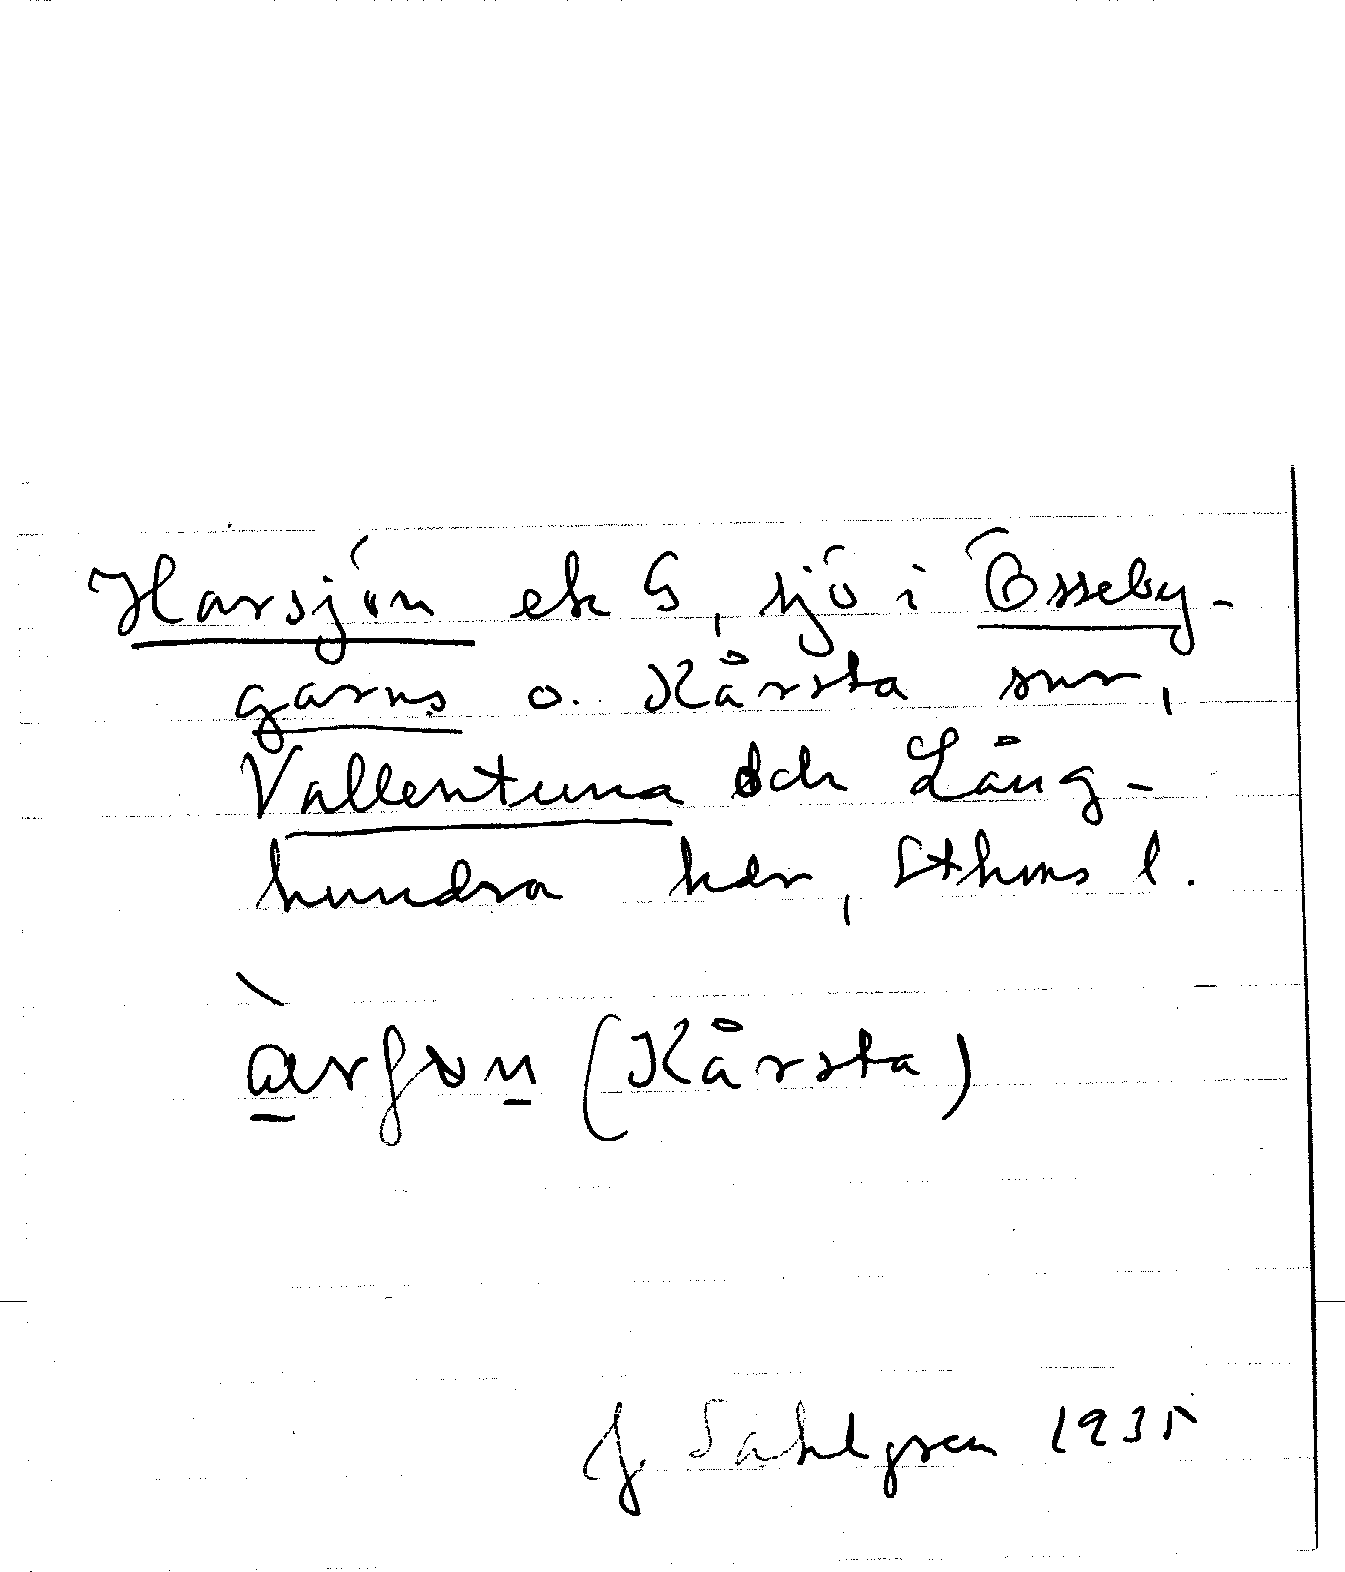 Harsjön ek S, sjö i Össeby-
garns o. Kårsta snr,
Vallentuna och Lång-
hundra hdr, Sthms l.
(Kårsta)
J. Sahlgren 1935